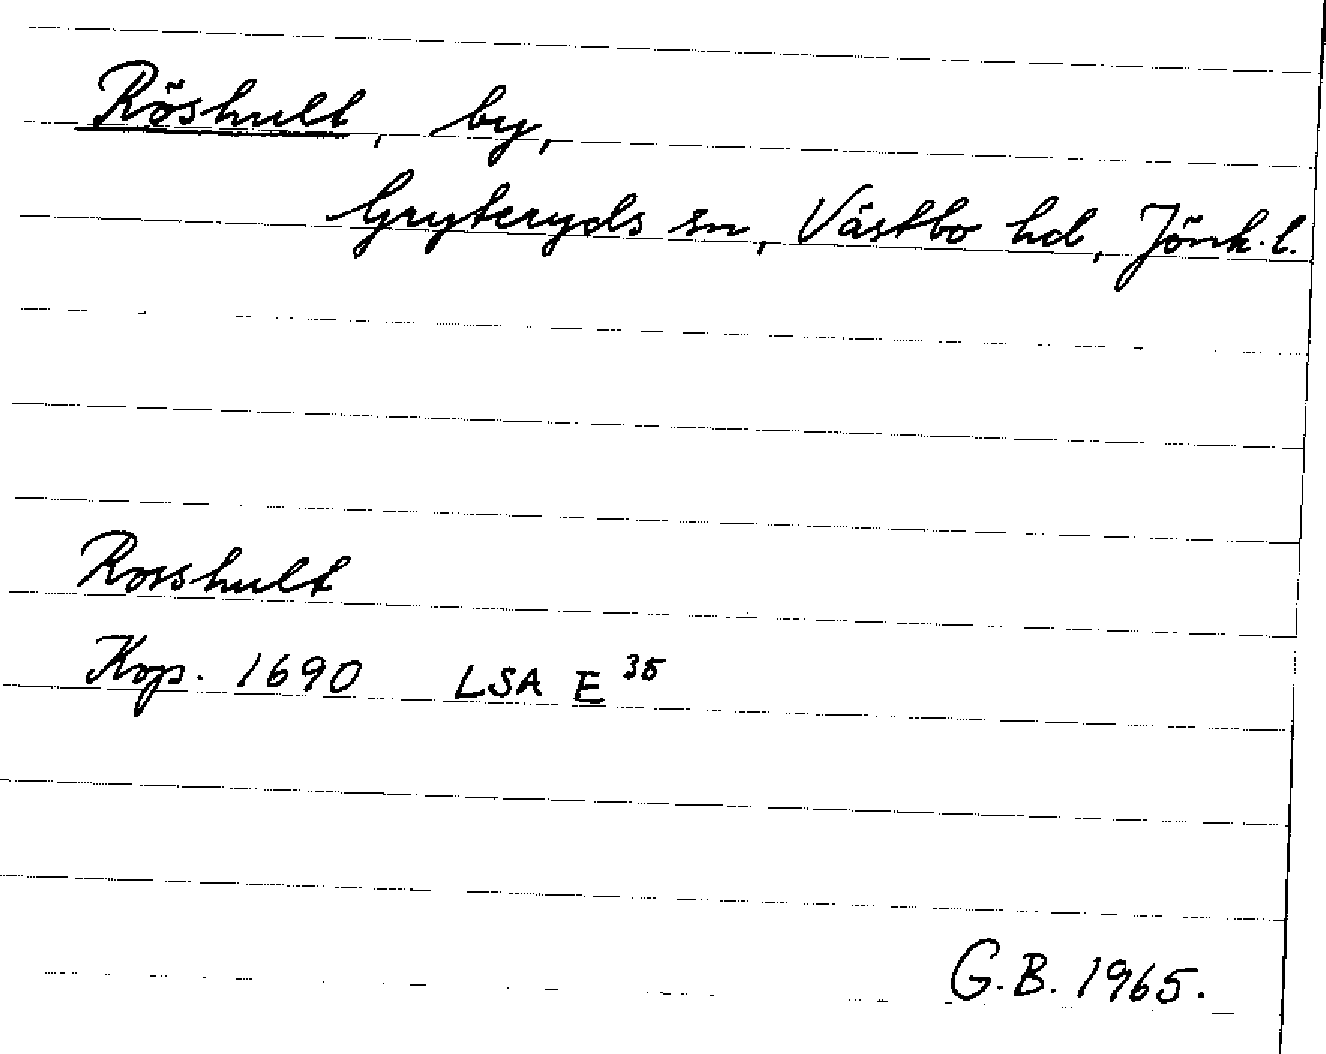 Röshult, by,
Gryteryds sn, Västbo hd, Jönk. l.
Rosshult
Kop. 1690 LSA E 35
G.B. 1965.